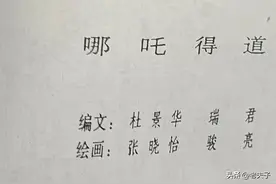 哪吒得道
编文：杜景华 瑞君
绘画：张晓怡 骏亮
头条@老夫字